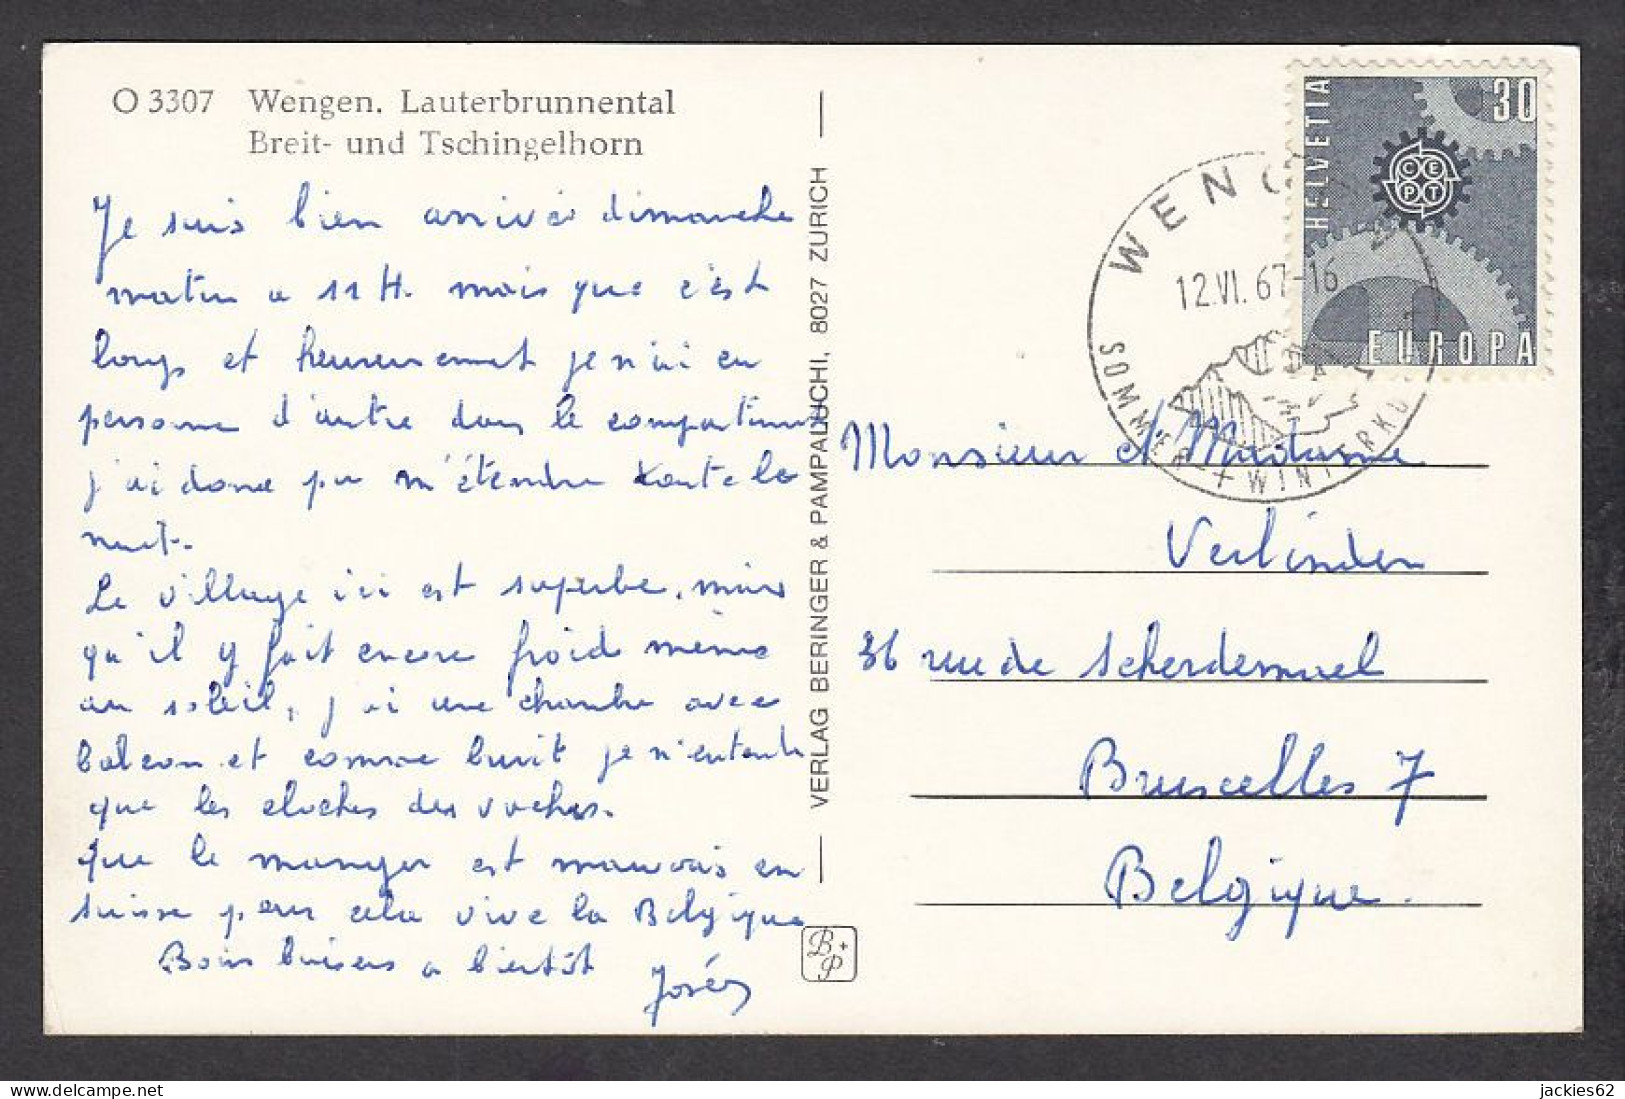 O 3307 Wengen. Lauterbrunnental
Breit- und Tschingelhorn
Je suis bien arrivée dimanche
matin a 11 H. mais que c'est
long et heureusement je n'ai eu
personne d'autre dans le compartiment
j'ai donc pu m'étendre toute la
nuit.
Le village ici est superbe, mais
qu'il y fait encore froid même
au soleil, j'ai une chambre avec
balcon et comme bruit je n'entends
que les cloches des vaches.
Que le manger est mauvais en
Suisse pour cela vive la Belgique
Bons baisers a bientôt
José
VERLAG BERINGER & PAMPALUCHI, 8027 ZURICH
B+P
HELVETIA
30
CEPT
EUROPA
WENGEN
12.VI.67-16
SOMMER + WINTERKU
Monsieur et Madame
Verlinden
36 rue de Scherdemael
Bruxelles 7
Belgique.
jackies62